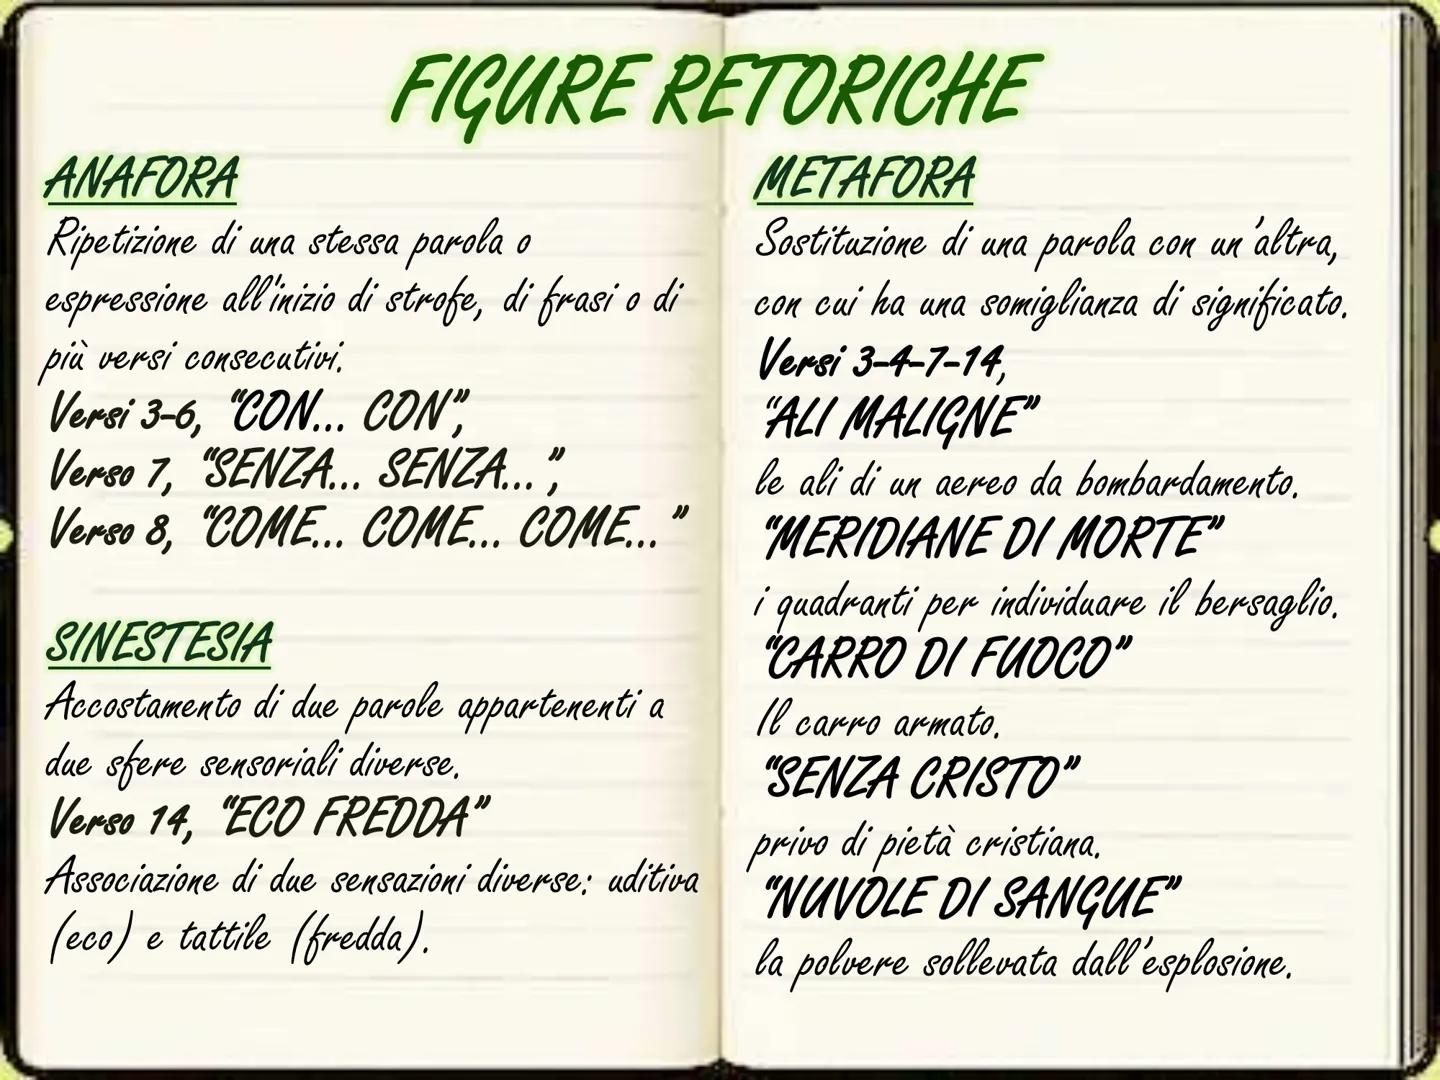 FIGURE RETORICHE
ANAFORA
Ripetizione di una stessa parola o
espressione all'inizio di strofe, di frasi o di
più versi consecutivi.
Versi 3-6, “CON... CON”,
Verso 7, “SENZA... SENZA...”,
Verso 8, “COME... COME... COME...”
SINESTESIA
Accostamento di due parole appartenenti a
due sfere sensoriali diverse.
Verso 14, “ECO FREDDA”
Associazione di due sensazioni diverse: uditiva
(eco) e tattile (fredda).
METAFORA
Sostituzione di una parola con un’altra,
con cui ha una somiglianza di significato.
Versi 3-4-7-14,
“ALI MALIGNE”
le ali di un aereo da bombardamento.
“MERIDIANE DI MORTE”
i quadranti per individuare il bersaglio.
“CARRO DI FUOCO”
Il carro armato.
“SENZA CRISTO”
privo di pietà cristiana.
“NUVOLE DI SANGUE”
la polvere sollevata dall’esplosione.